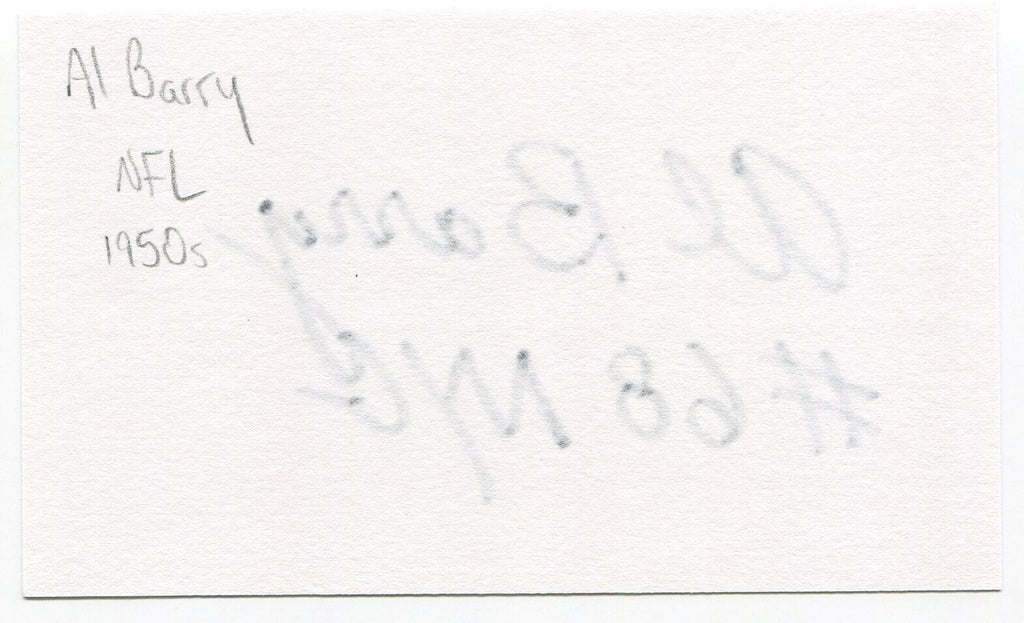 Al Barry
NFL
1950s
Al Barry
#68 NYG